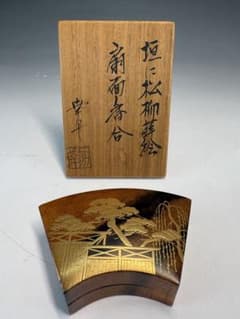 垣に松柳蒔絵
扇面香合